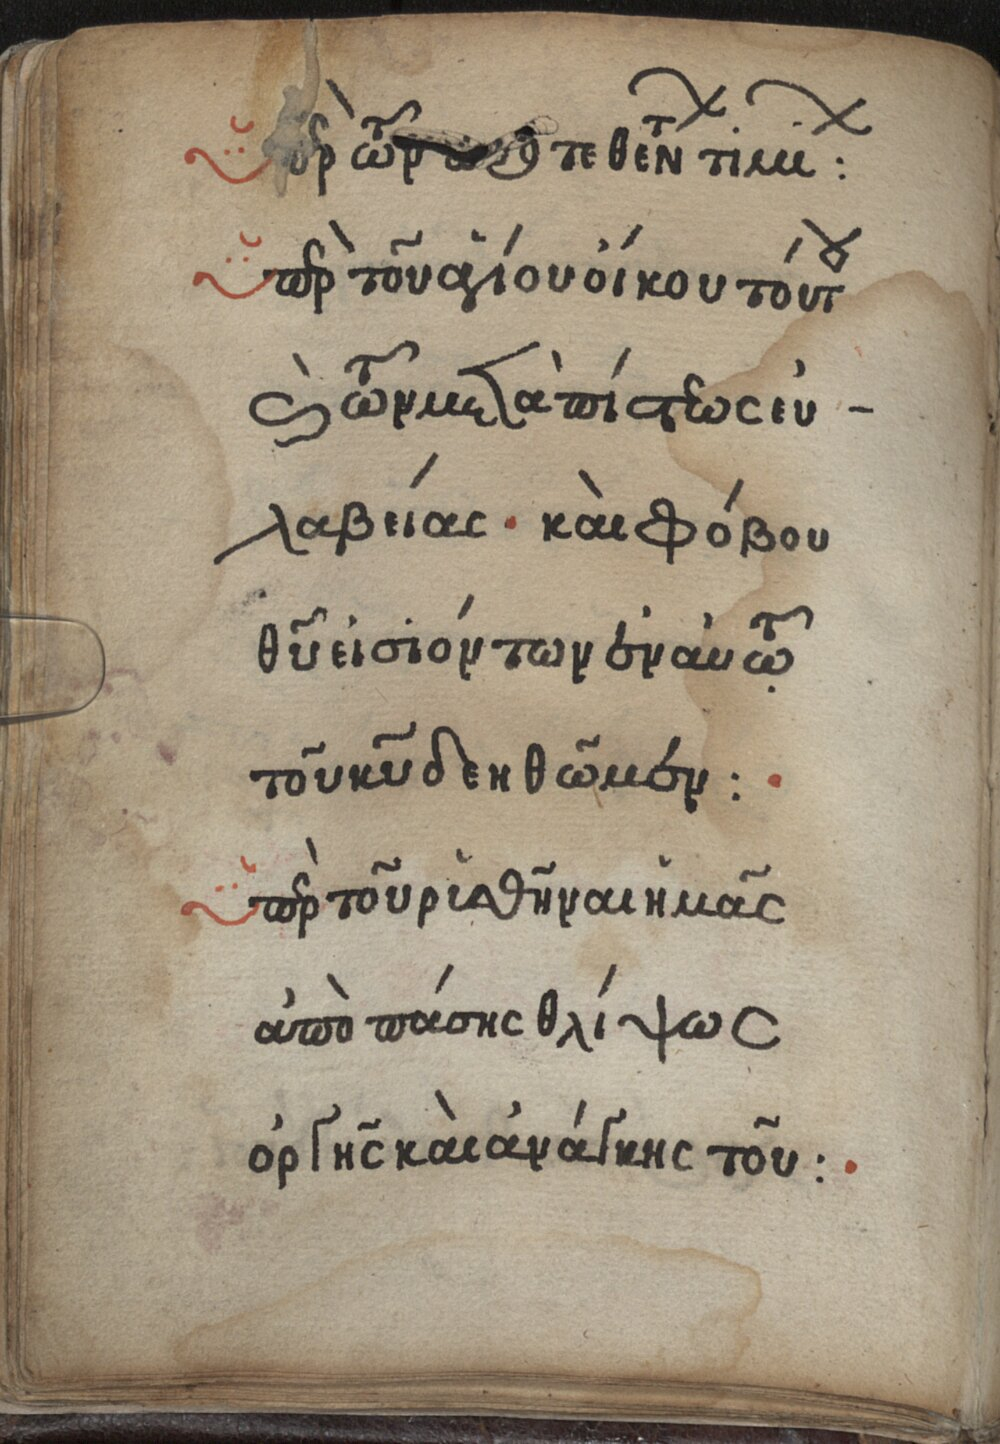 ὑπὲρ τῶν προτεθέντ τιμι :
ὑπὲρ τοῦ ἁγίου οἴκου τούτου
καὶ τῶν μετὰ πίστεως εὐ -
λαβείας · καὶ φόβου
θῦ εἰσιόντων ἐν αὐτῶ
τοῦ κῦ δεηθῶμεν :
ὑπὲρ τοῦ ῥυσθῆναι ἡμᾶς
ἀπὸ πάσης θλίψεως
ὀργῆς καὶ ἀνάγκης τοῦ :